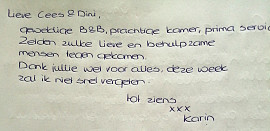 Lieve Cees & Dini,
geweldige B&B, prachtige kamer, prima servic
Zelden zulke lieve en behulpzame
mensen tegen gekomen.
Dank jullie wel voor alles, deze week
zal ik niet snel vergeten.
tot ziens
xxx
Karin